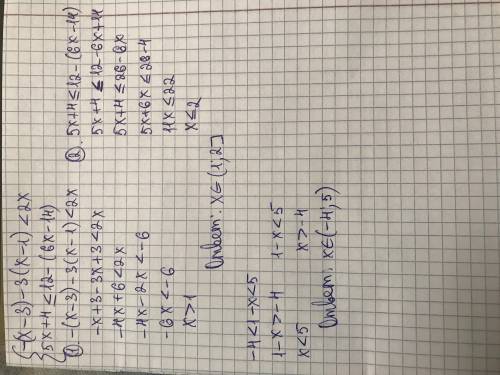 {-(x-3)-3(x-1)<2x
5x+4≤12-(6x-14)
① -(x-3)-3(x-1)<2x
-x+3-3x+3<2x
-4x+6<2x
-4x-2x<-6
-6x<-6
x>1
②. 5x+4≤12-(6x-14)
5x+4≤12-6x+14
5x+4≤26-6x
5x+6x≤26-4
11x≤22
x≤2
Ответ: x∈(1;2]
-4<1-x<5
1-x>-4 1-x<5
x<5 x>-4
Ответ: x∈(-4;5)